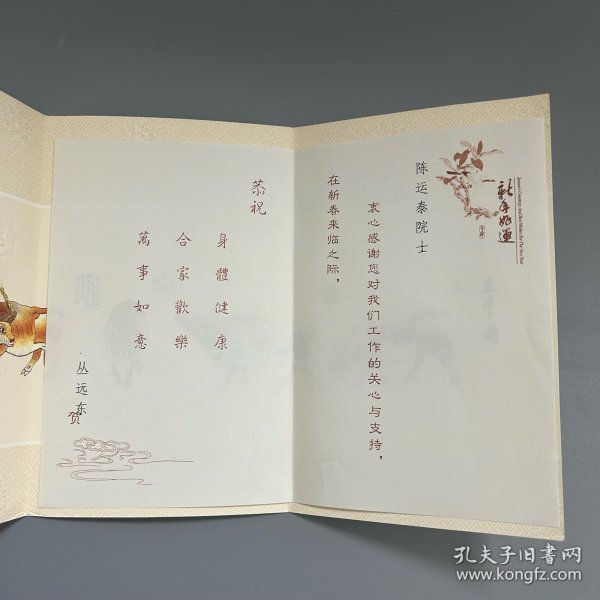 新年好運
Season's Greetings And Best Wishes For The New Year
陈运泰院士
衷心感谢您对我们工作的关心与支持，
在新春来临之际，
恭祝
身體健康
合家歡樂
萬事如意
丛远东
贺
孔夫子旧书网
www.kongfz.com